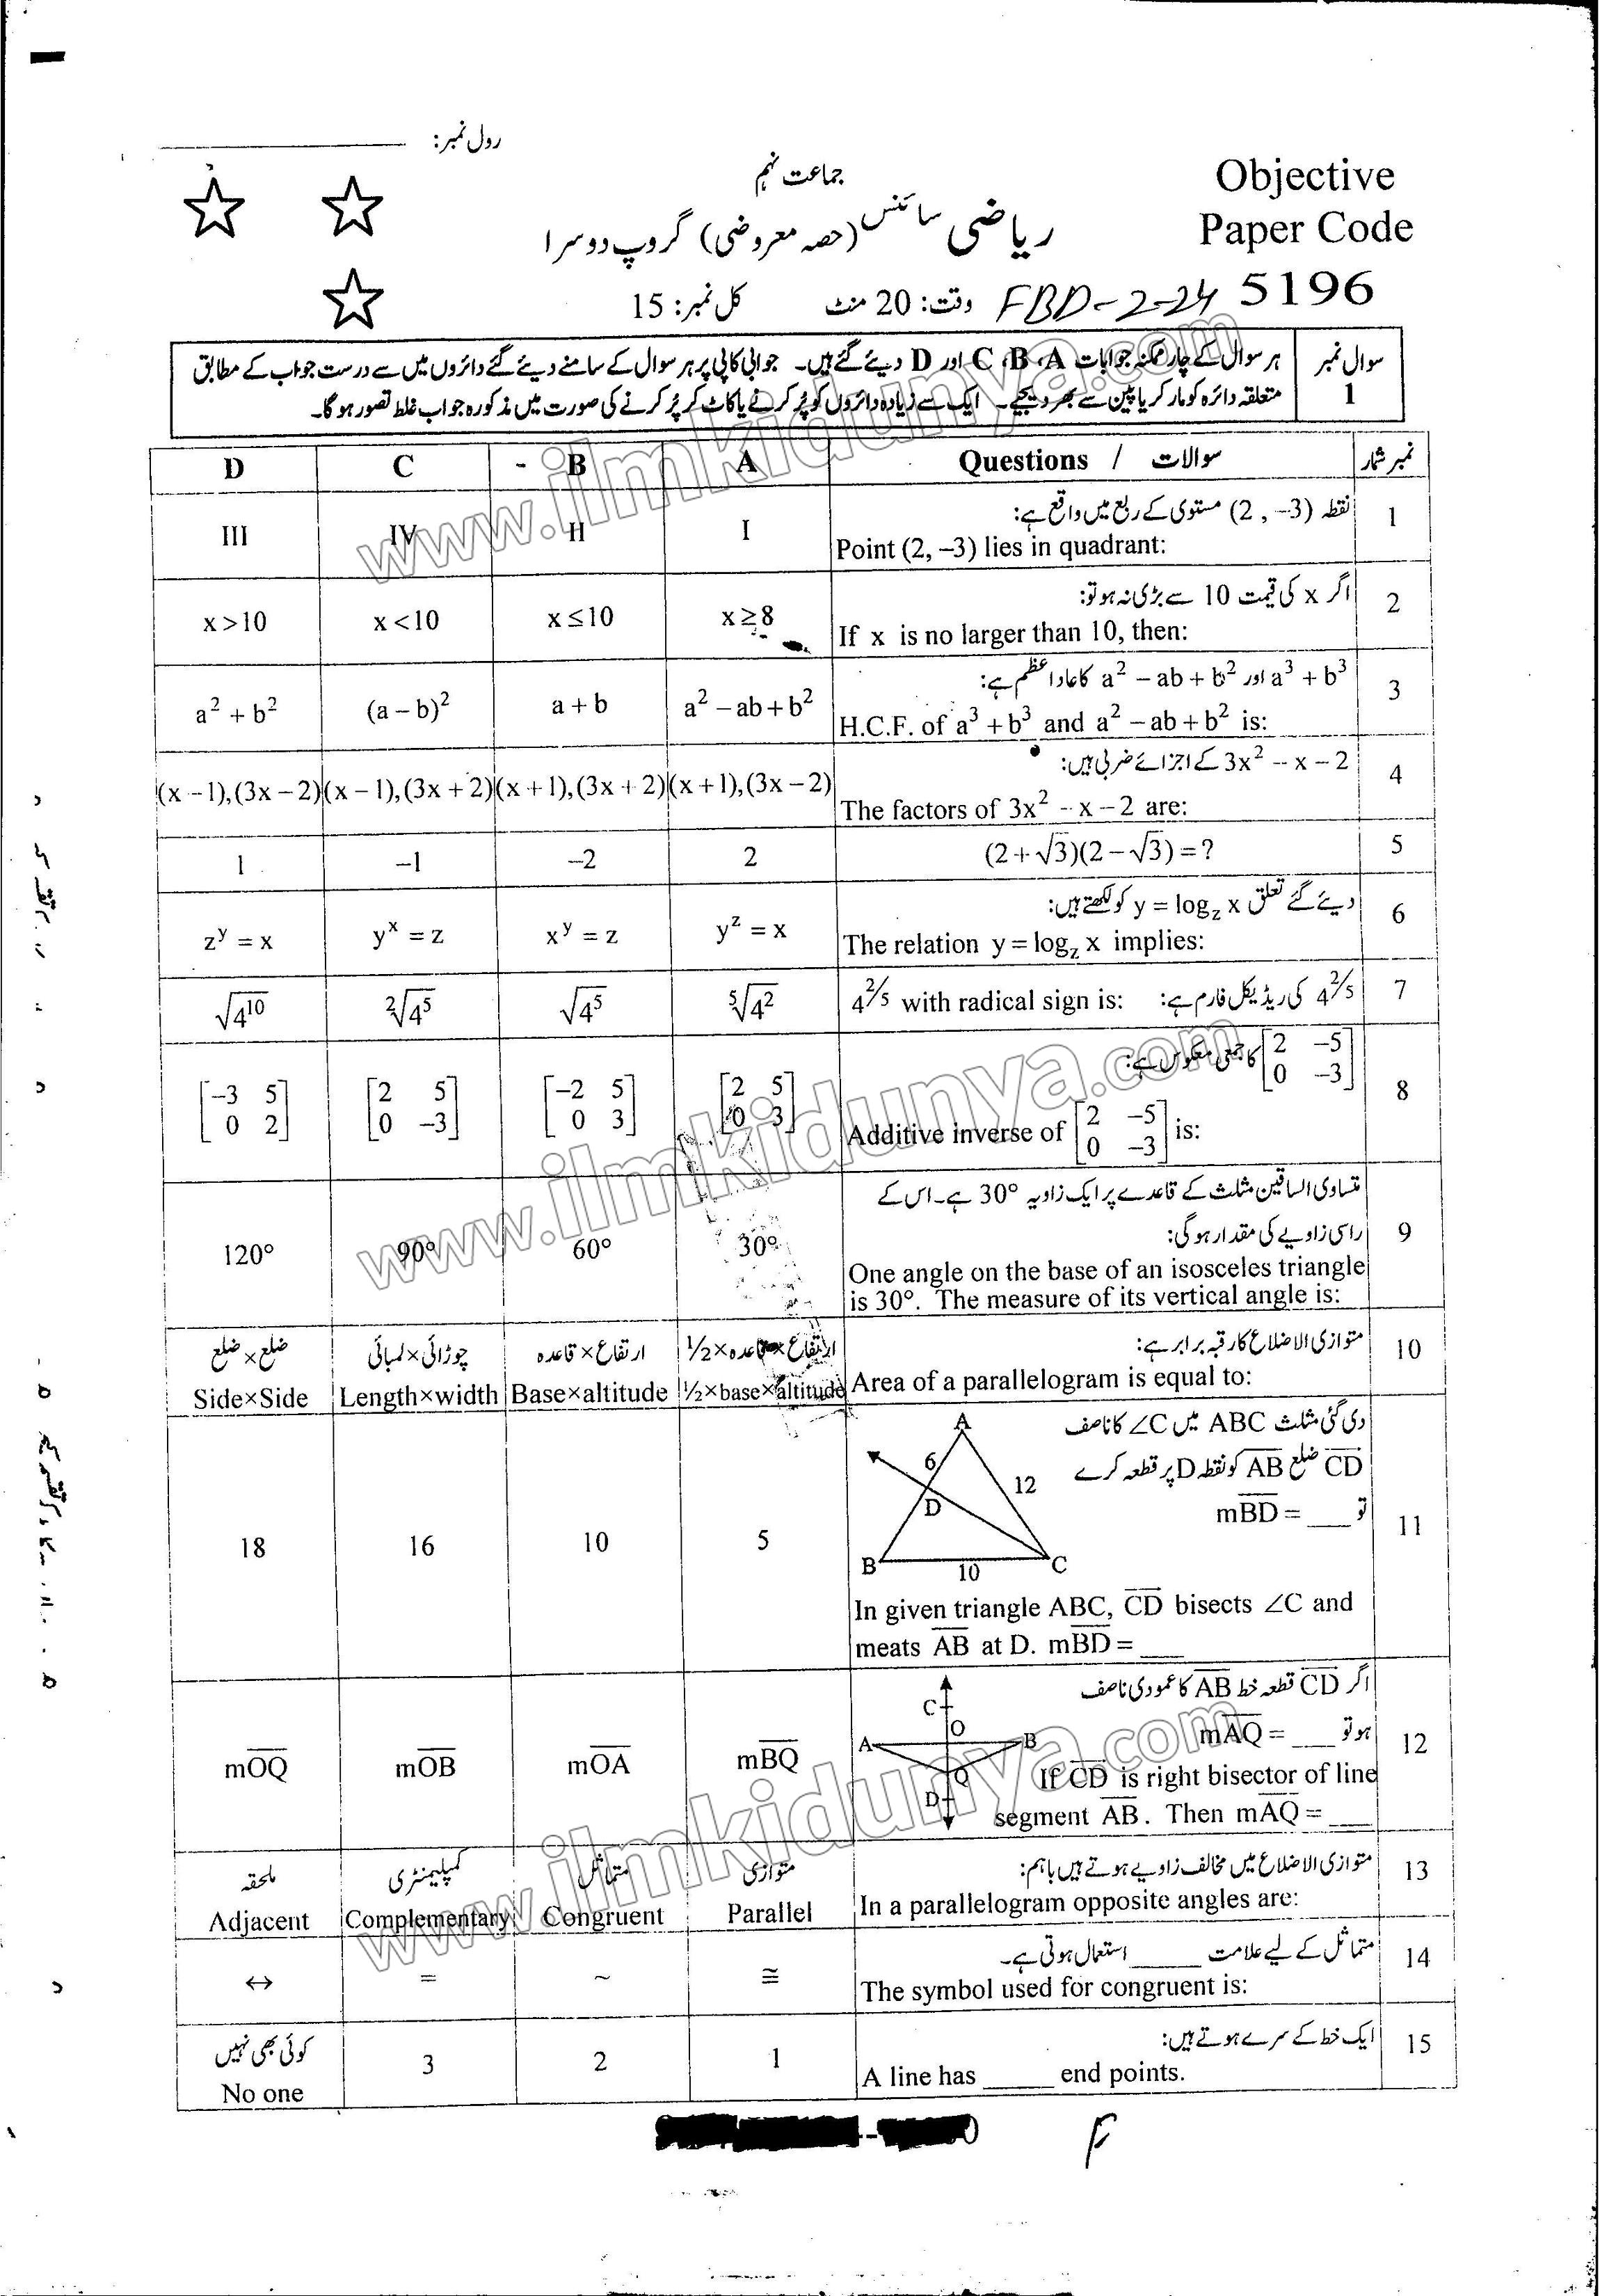 رول نمبر: ____________
جماعت نہم
Objective
ریاضی سائنس (حصہ معروضی) گروپ دوسرا
Paper Code
5196
FBD-2-24
وقت: 20 منٹ
کل نمبر: 15
سوال نمبر 1
ہر سوال کے چار ممکنہ جوابات A، B، C اور D دیئے گئے ہیں۔ جوابی کاپی پر ہر سوال کے سامنے دیئے گئے دائروں میں سے درست جواب کے مطابق
متعلقہ دائرہ کو مارکر یا پین سے بھر دیجئے۔ ایک سے زیادہ دائروں کو پُر کرنے یا کاٹ کر پُر کرنے کی صورت میں مذکورہ جواب غلط تصور ہو گا۔
نمبر شمار | سوالات / Questions | A | B | C | D
1 نقطہ (2, –3) مستوی کے ربع میں واقع ہے:
Point (2, –3) lies in quadrant:
I | II | IV | III
2 اگر x کی قیمت 10 سے بڑی نہ ہو تو:
If x is no larger than 10, then:
x ≥ 8 | x ≤ 10 | x < 10 | x > 10
3 a³ + b³ اور a² – ab + b² کا عاد اعظم ہے:
H.C.F. of a³ + b³ and a² – ab + b² is:
a² – ab + b² | a + b | (a – b)² | a² + b²
4 3x² – x – 2 کے اجزائے ضربی ہیں:
The factors of 3x² – x – 2 are:
(x + 1), (3x – 2) | (x + 1), (3x + 2) | (x – 1), (3x + 2) | (x – 1), (3x – 2)
5 (2 + √3)(2 – √3) = ?
2 | –2 | –1 | 1
6 دیئے گئے تعلق y = log_z x کو لکھتے ہیں:
The relation y = log_z x implies:
y^z = x | x^y = z | y^x = z | z^y = x
7 4^(2/5) کی ریڈیکل فارم ہے: 4^(2/5) with radical sign is:
⁵√4² | √4⁵ | ²√4⁵ | √4¹⁰
8 [2 –5; 0 –3] کا جمعی معکوس ہے:
Additive inverse of [2 –5; 0 –3] is:
[2 5; 0 3] | [–2 5; 0 3] | [2 5; 0 –3] | [–3 5; 0 2]
9 متساوی الساقین مثلث کے قاعدے پر ایک زاویہ 30° ہے۔ اس کے
راسی زاویے کی مقدار ہو گی:
One angle on the base of an isosceles triangle
is 30°. The measure of its vertical angle is:
30° | 60° | 90° | 120°
10 متوازی الاضلاع کا رقبہ برابر ہے:
Area of a parallelogram is equal to:
ارتفاع × قاعدہ × ½ | ارتفاع × قاعدہ | چوڑائی × لمبائی | ضلع × ضلع
½×base×altitude | Base×altitude | Length×width | Side×Side
11 دی گئی مثلث ABC میں ∠C کا ناصف
CD ضلع AB کو نقطہ D پر قطعہ کرے
تو mBD = ___
A
6
12
D
B
10
C
In given triangle ABC, CD bisects ∠C and
meats AB at D. mBD = ___
5 | 10 | 16 | 18
12 اگر CD قطعہ خط AB کا عمودی ناصف
ہو تو mAQ = ___
C
O
A
B
Q
D
If CD is right bisector of line
segment AB. Then mAQ = ___
mBQ | mOA | mOB | mOQ
13 متوازی الاضلاع میں مخالف زاویے ہوتے ہیں باہم:
In a parallelogram opposite angles are:
متوازی | متماثل | کمپلیمنٹری | ملحقہ
Parallel | Congruent | Complementary | Adjacent
14 متماثل کے لیے علامت _____ استعمال ہوتی ہے۔
The symbol used for congruent is:
≅ | ~ | = | ↔
15 ایک خط کے سرے ہوتے ہیں:
A line has _____ end points.
1 | 2 | 3 | کوئی بھی نہیں
No one
www.ilmkidunya.com
www.ilmkidunya.com
www.ilmkidunya.com